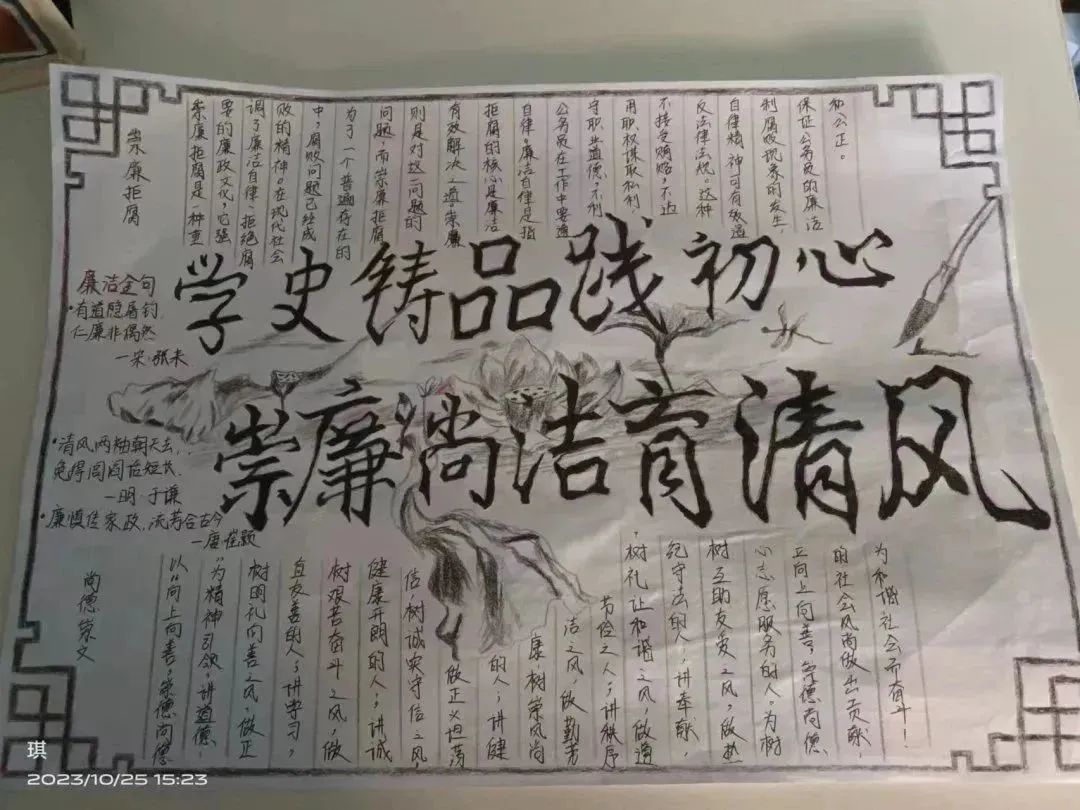 学史铸品践初心
崇廉尚洁育清风
崇廉拒腐
崇廉拒腐是一种重
要的廉政文化,它强
调了廉洁自律、拒绝腐
败的精神。在现代社会
中,腐败问题已经成
为了一个普遍存在的
问题,而崇廉拒腐
则是对这一问题的
有效解决之道。崇廉
拒腐的核心是廉洁
自律。廉洁自律是指
公务员在工作中要遵
守职业道德,不利
用职权谋取私利,
不接受贿赂,不违
反法律法规。这种
自律精神可有效遏
制腐败现象的发生
保证公务员的廉洁
和公正。
廉洁金句
·有道隐屠钓,
仁廉非偶然
—宋·张耒
·清风两袖朝天去,
免得闾阎话短长.
—明·于谦
·廉慎传家政,流芳合古今
—唐崔颢
尚德崇文
以“向上向善,崇德尚德
”为精神引领,讲道德,
树明礼向善之风,做正
直友善的人;讲学习,
树艰苦奋斗之风,做
健康开朗的人;讲诚
信,树诚实守信之风,
做正义坦荡
的人;讲健
康,树崇风尚
洁之风,做勤劳
节俭之人;讲秩序
,树礼让和谐之风,做遵
纪守法的人;讲奉献,
树互助友爱之风,做热
心志愿服务的人。为树
立向上向善,崇德尚德,
的社会风尚做出贡献,
为和谐社会而奋斗!
琪
2023/10/25 15:23